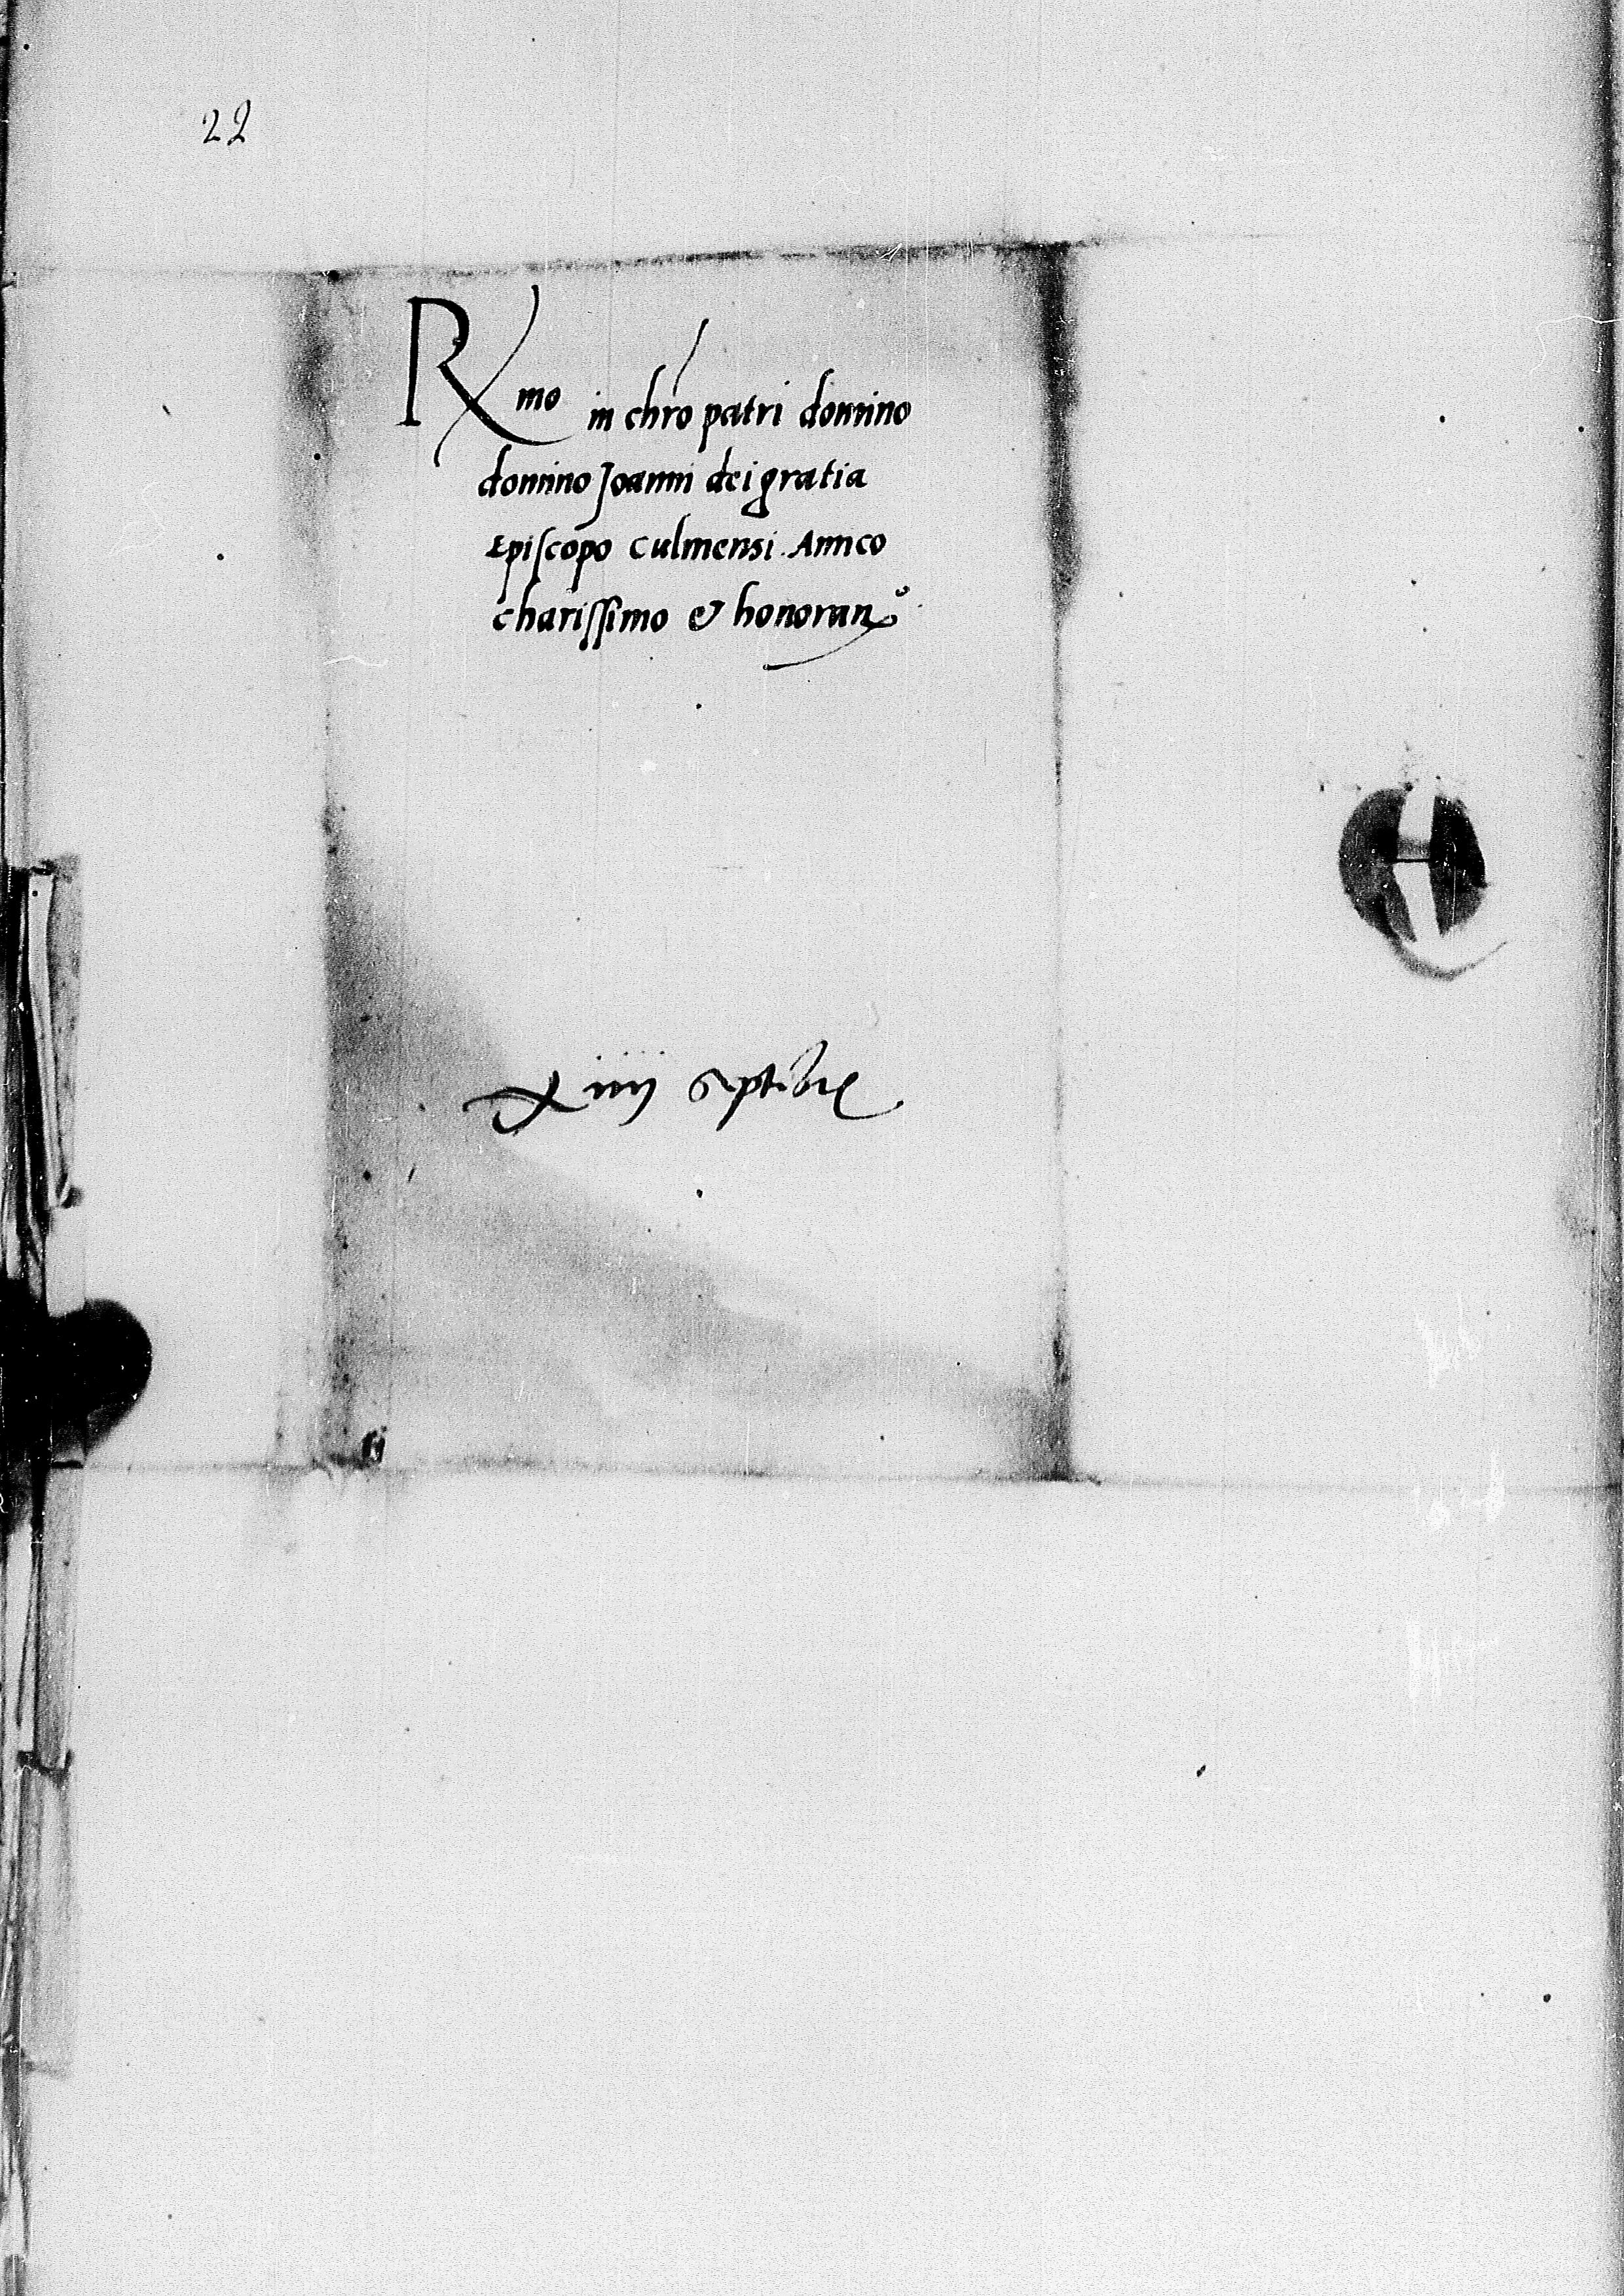 22
Rmo in chro patri domino
domino Joanni dei gratia
Episcopo Culmensi. Amico
charissimo & honoran°
xiiij Septebre